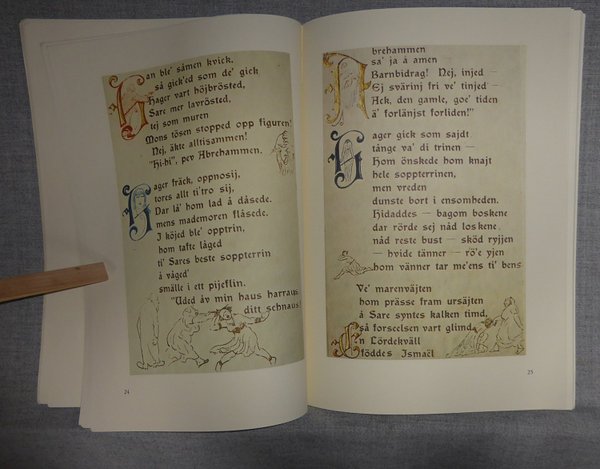 Han ble' såmen kvick,
så gick'ed som de' gick
Hager vart höjbrösted,
Sare mer lavrösted,
tej som muren
Mons tösen stopped opp figuren!
Nej, äkte alltisammen!
"Hi-hi", pev Abrehammen.
Hager fräck, oppnosij,
tores allt ti'tro sij,
Dar lå' hom lad å dåsede.
mens mademoren flåsede.
I köjed ble' opptrin,
hom tafte låged
ti' Sares beste soppterrin
å våged'
smälle i ett pijeflin.
"Uded åv min haus harraus
ditt schnaus!
24
Abrehammen
sa' ja å amen
Barnbidrag! Nej, injed —
Ej svärinj fri ve' tinjed —
Ack, den gamle, goe' tiden
ä' förlänjst förliden!"
Hager gick som sajdt
tånge va' di trinen —
Hom önskede hom knajt
hele soppterrinen,
men vreden
dunste bort i ensomheden.
Hidaddes — bagom boskene
dar rörde sej nåd loskene,
nåd reste bust — sköd ryjjen
— hvide tänner — rö'e yjen
hom vänner tar me'ens ti' bens
Ve' marenväjten
hom prässe fram ursäjten
å Sare syntes kalken timd,
så forseelsen vart glimd
En Lördekväll
föddes Ismaël
25